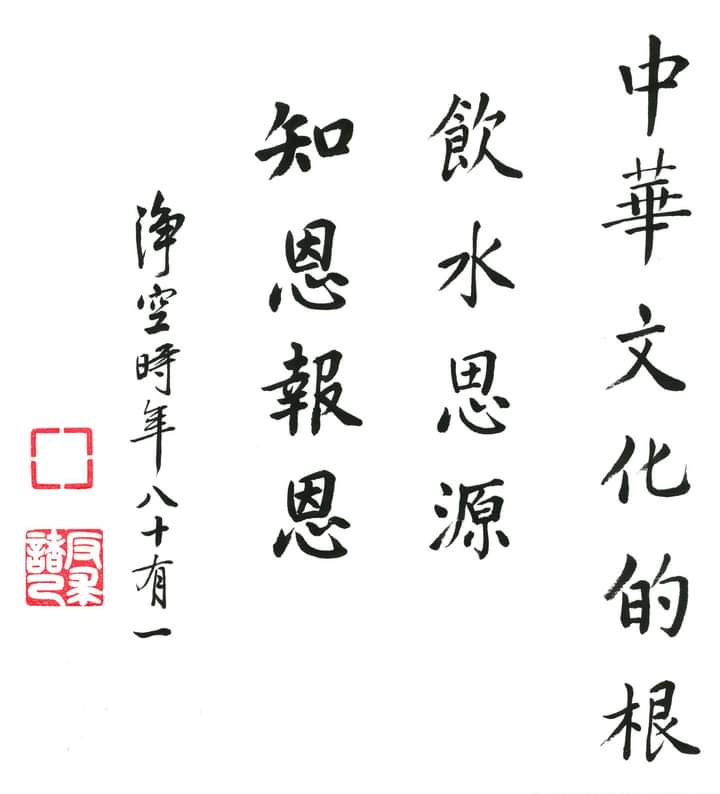 中華文化的根
飲水思源
知恩報恩
淨空時年八十有一
反求諸己